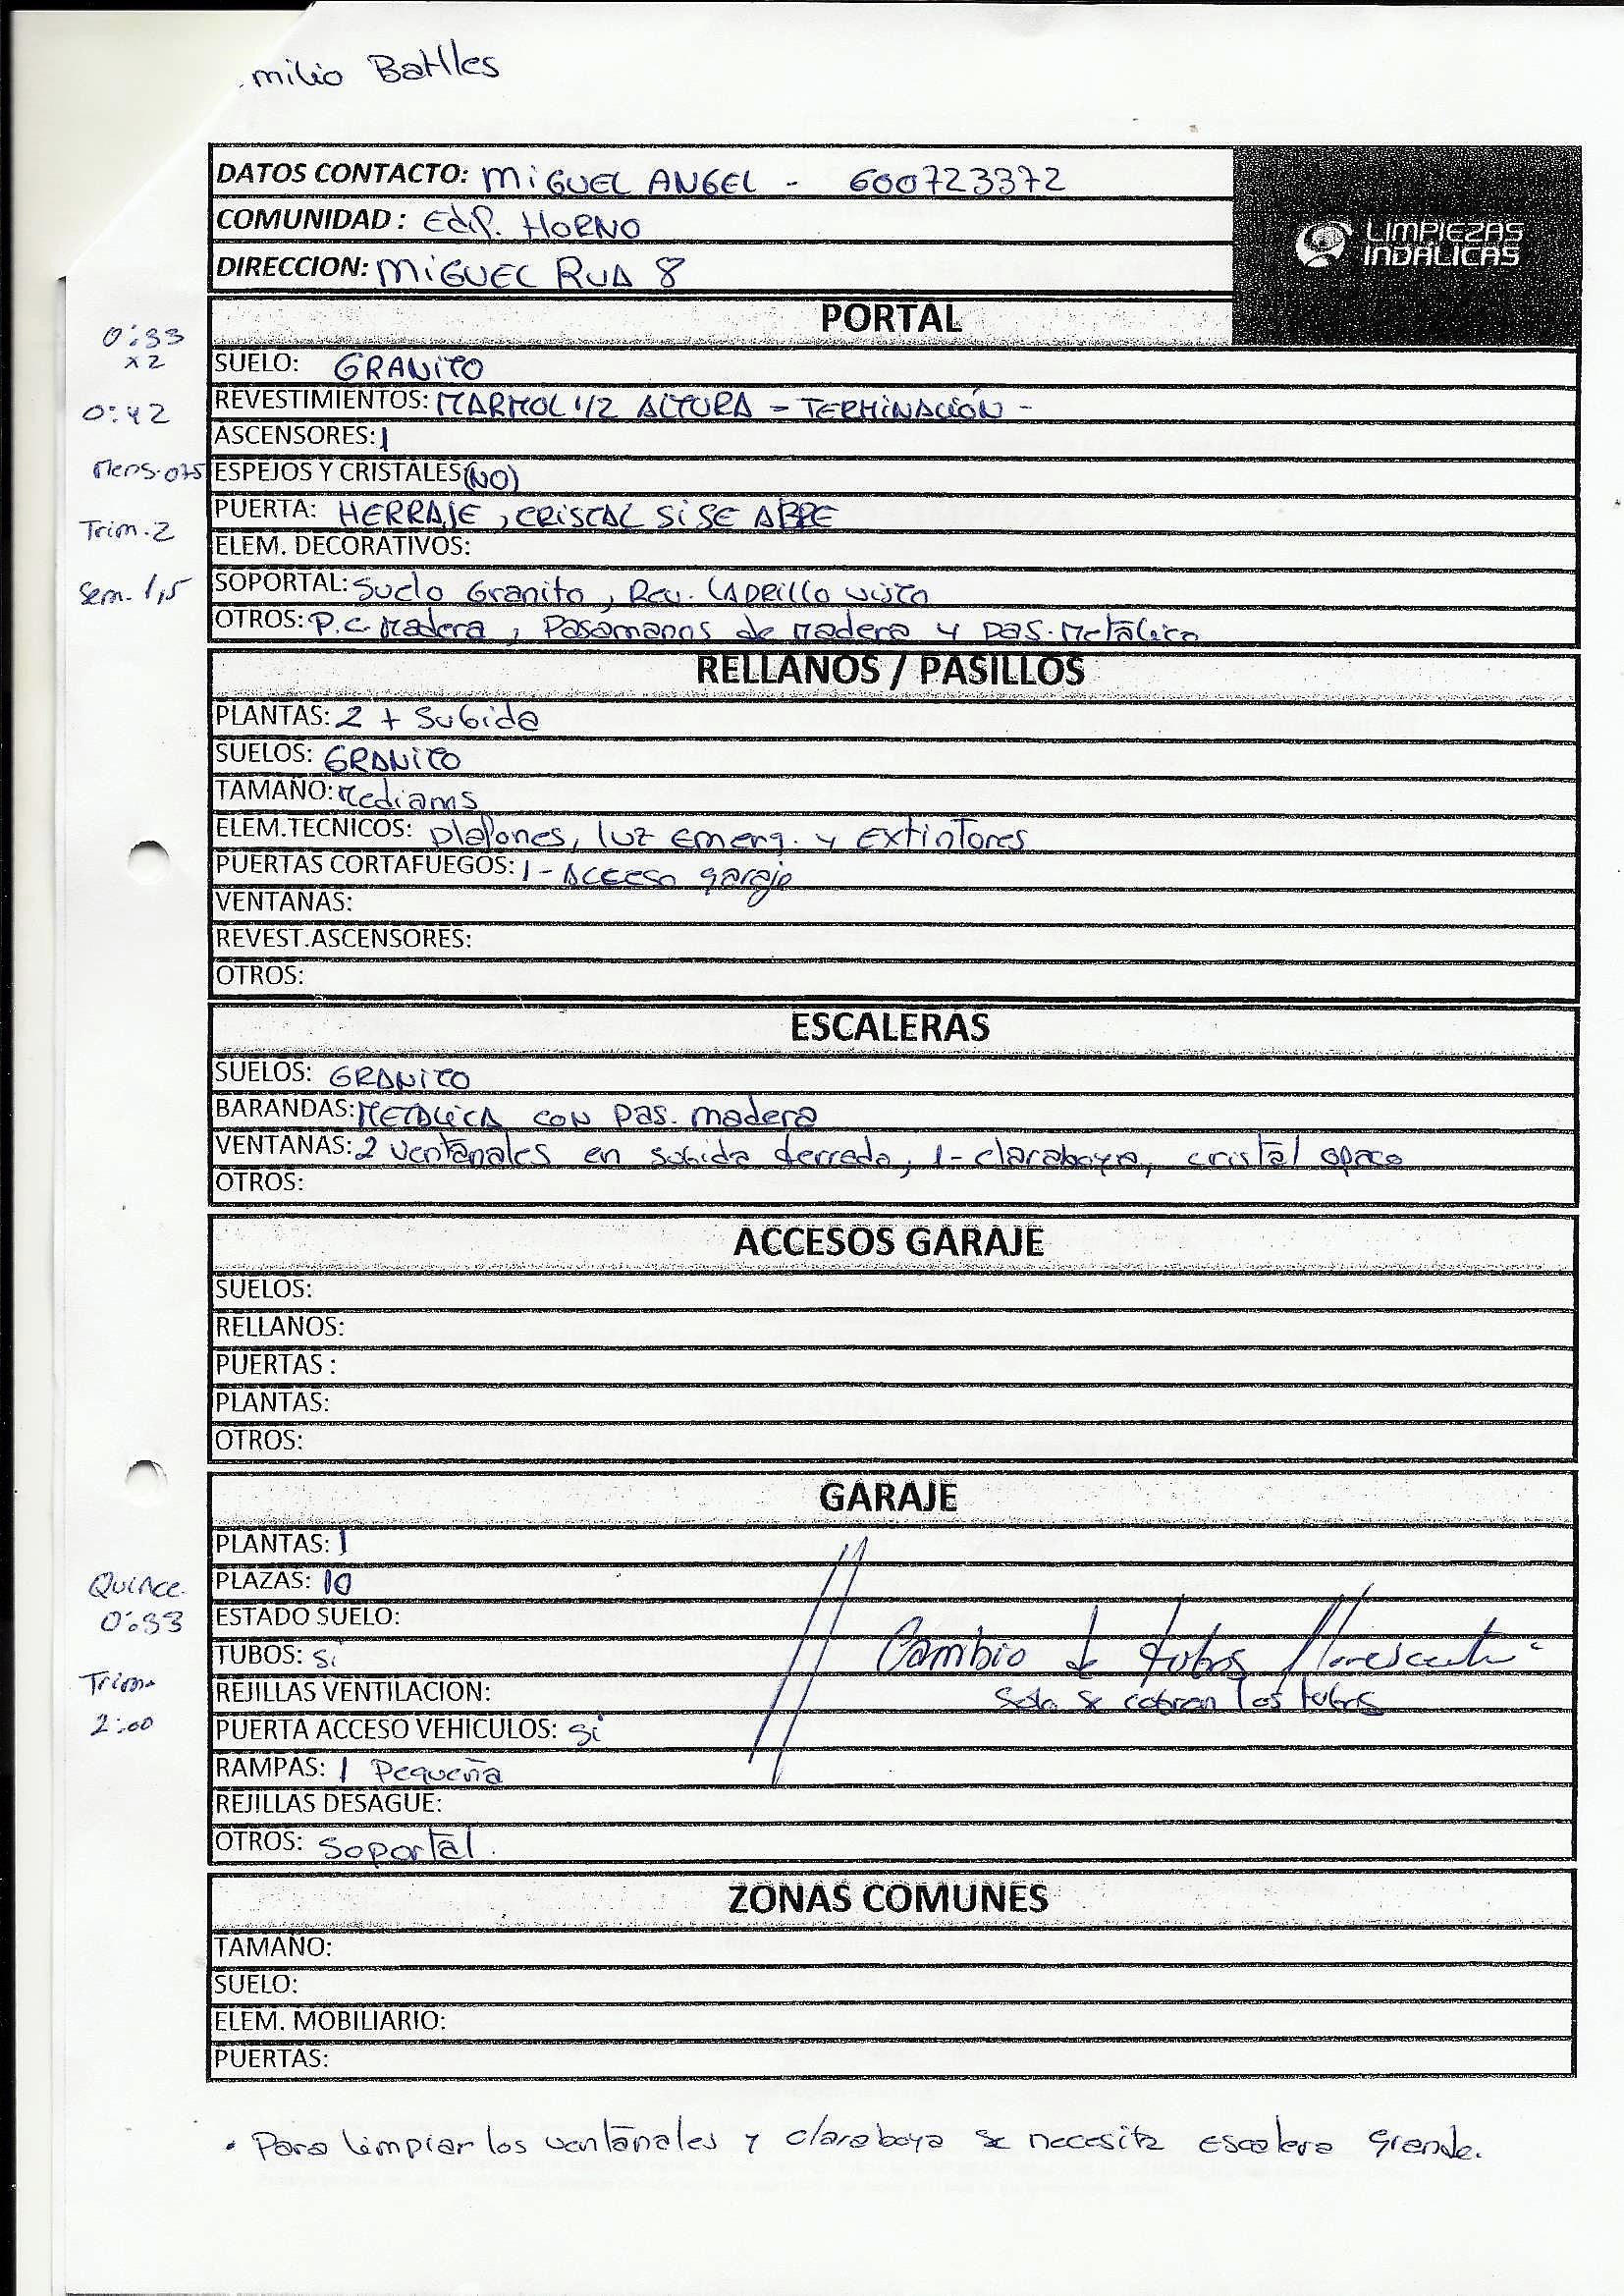 milio Batlles
DATOS CONTACTO: MIGUEL ANGEL - 600723372
COMUNIDAD : Edif. HORNO
DIRECCION: MIGUEL RUA 8
LIMPIEZAS
INDALICAS
PORTAL
0:33
x2
SUELO: GRANITO
0:42
REVESTIMIENTOS: MARMOL 1/2 ALTURA - TERMINACIÓN -
ASCENSORES: 1
Mens. 075
ESPEJOS Y CRISTALES (NO)
PUERTA: HERRAJE, CRISTAL SI SE ABRE
Trim. 2
ELEM. DECORATIVOS:
Sem. 1,5
SOPORTAL: Suelo Granito, Rev. LADRILLO VISTO
OTROS: P.C. Madera, Pasamanos de madera y pas. Metálico
RELLANOS / PASILLOS
PLANTAS: 2 + Subida
SUELOS: GRANITO
TAMAÑO: Medianos
ELEM.TECNICOS: Plafones, luz emerg. y Extintores
PUERTAS CORTAFUEGOS: 1 - Acceso garaje
VENTANAS:
REVEST.ASCENSORES:
OTROS:
ESCALERAS
SUELOS: GRANITO
BARANDAS: METALICA CON pas. madera
VENTANAS: 2 ventanales en subida terrado, 1- claraboya, cristal opaco
OTROS:
ACCESOS GARAJE
SUELOS:
RELLANOS:
PUERTAS :
PLANTAS:
OTROS:
GARAJE
PLANTAS: 1
Quince.
PLAZAS: 10
0:33
ESTADO SUELO:
TUBOS: Si
Cambio de tubos
Trim.
REJILLAS VENTILACION:
Solo se cobran los tubos
2:00
PUERTA ACCESO VEHICULOS: Si
RAMPAS: 1 Pequeña
REJILLAS DESAGUE:
OTROS: Soportal.
ZONAS COMUNES
TAMAÑO:
SUELO:
ELEM. MOBILIARIO:
PUERTAS:
• Para limpiar los ventanales y claraboya se necesita escalera grande.